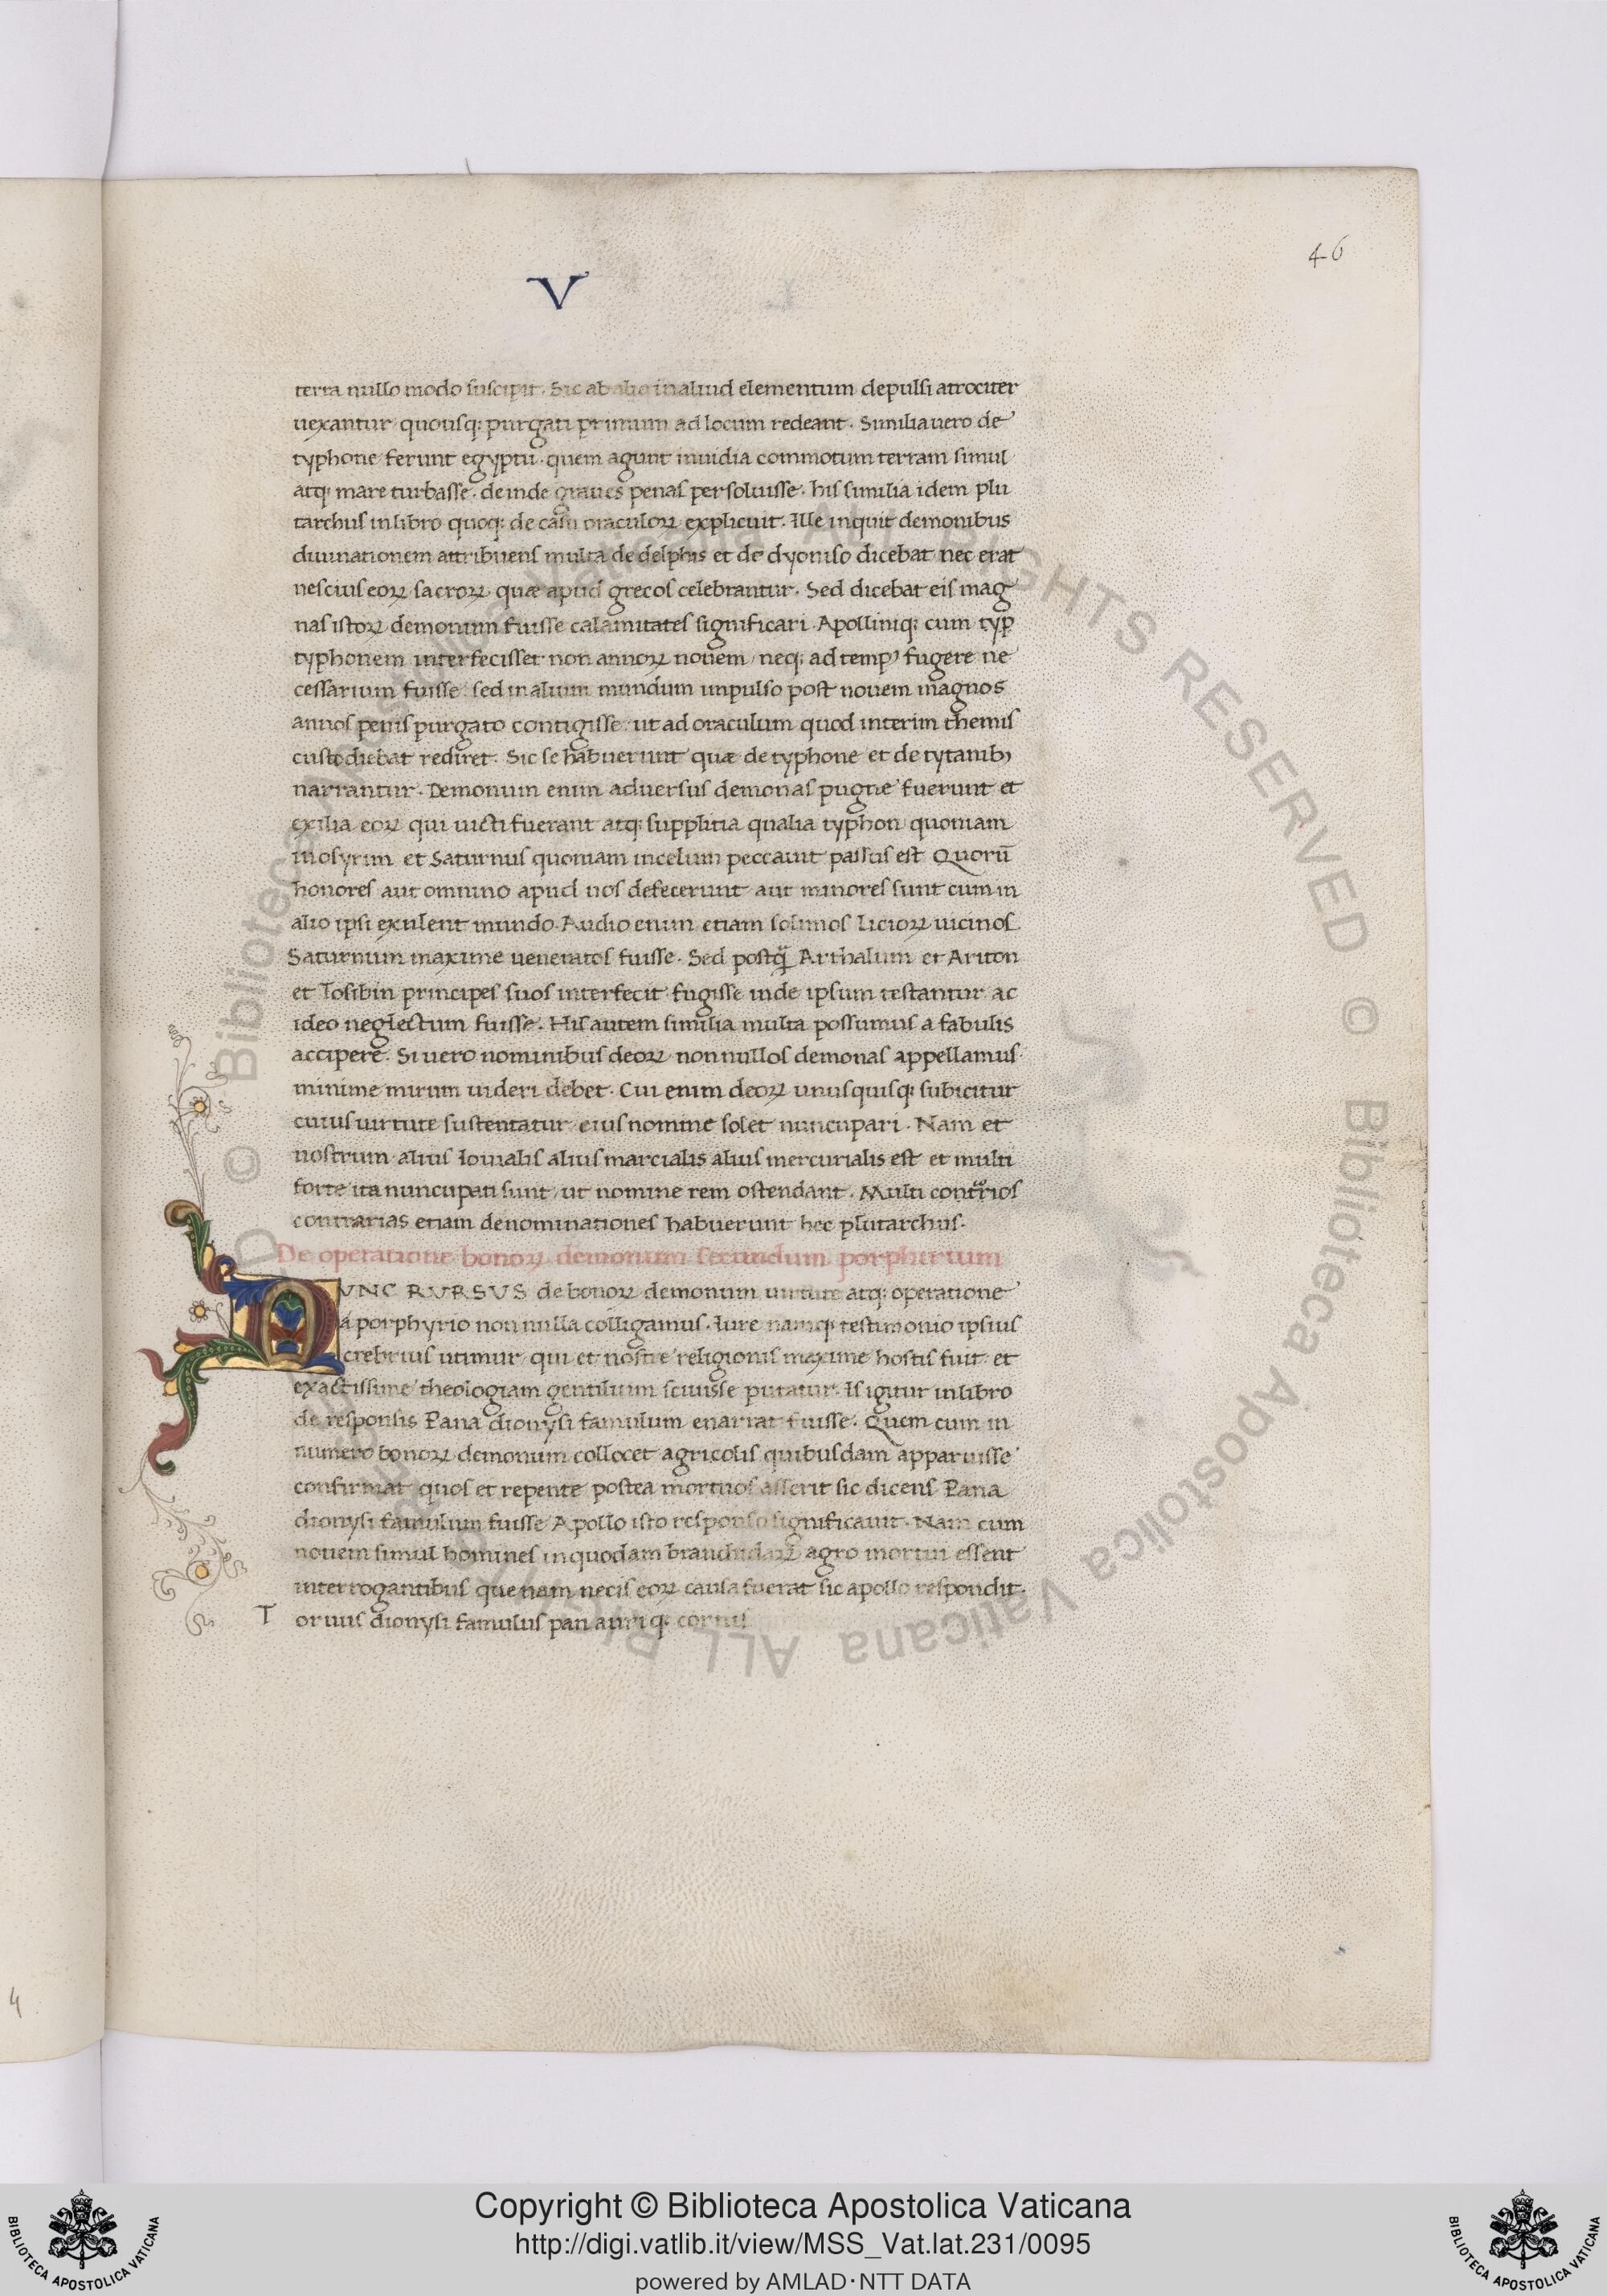 46
V
terra nullo modo suscipit. Sic ab alio in aliud elementum depulsi atrociter
uexantur quousq; purgati primum ad locum redeant. Similia uero de
typhone ferunt egyptii. quem agunt inuidia commotum terram simul
atq; mare turbasse. deinde graues penas persoluisse. his similia idem plu
tarchus in libro quoq; de casu oraculoꝝ explicuit. Ille inquit demonibus
diuinationem attribuens multa de delphis et de dyoniso dicebat nec erat
nescius eoꝝ sacroꝝ quæ apud grecos celebrantur. Sed dicebat eis mag
nas istoꝝ demonum fuisse calamitates significari. Apolliniq; cum typ
typhonem interfecisset non annoꝝ nouem neq; ad tempꝰ fugere ne
cessarium fuisse: sed in alium mundum impulso post nouem magnos
annos penis purgato contigisse: ut ad oraculum quod interim themis
custodiebat rediret. Sic se habuerunt quæ de typhone et de tytanibꝫ
narrantur. Demonum enim aduersus demonas pugne fuerunt et
exilia eoꝝ qui uicti fuerant atq; supplitia qualia typhon quoniam
in osyrim et Saturnus quoniam in celum peccauit passus est Quorū
honores aut omnino apud nos defecerunt aut minores sunt cum in
alio ipsi exulent mundo. Audio enim etiam solimos Licioꝝ uicinos
Saturnum maxime ueneratos fuisse. Sed postq̄ Arthalum et Ariton
et Tosibin principes suos interfecit fugisse inde ipsum testantur ac
ideo neglectum fuisse. His autem similia multa possumus a fabulis
accipere. Si uero nominibus deoꝝ nonnullos demonas appellamus
minime mirum uideri debet. Cui enim deoꝝ unusquisq; subicitur
cuius uirtute sustentatur eius nomine solet nuncupari. Nam et
nostrum alius Iouialis alius marcialis alius mercurialis est et multi
forte ita nuncupati sunt ut nomine rem ostendant. Multi contrarios
contrarias etiam denominationes habuerunt hec plutarchus.
De operatione bonoꝝ demonum secundum porphirium
NVNC RVRSVS de bonoꝝ demonum uirtute atq; operatione
á porphyrio non nulla colligamus. Iure namq; testimonio ipsius
crebrius utimur qui et nostre religionis maxime hostis fuit et
exactissime theologiam gentilium sciuisse putatur. Is igitur in libro
de responsis Pana dionysi famulum enarrat fuisse. Quem cum in
numero bonoꝝ demonum collocet agricolis quibusdam apparuisse
confirmat quos et repente postea mortuos asserit sic dicens Pana
dionysi famulum fuisse Apollo isto responso significauit. Nam cum
nouem simul homines in quodam branchidaꝝ agro mortui essent
interrogantibus quenam necis eoꝝ causa fuerat sic apollo respondit.
T oruus dionysi famulus pan auriq; cornus
4
© Biblioteca Apostolica Vaticana ALL RIGHTS RESERVED
© Biblioteca Apostolica Vaticana ALL RIGHTS RESERVED
Copyright © Biblioteca Apostolica Vaticana
http://digi.vatlib.it/view/MSS_Vat.lat.231/0095
powered by AMLAD·NTT DATA
BIBLIOTECA APOSTOLICA VATICANA
BIBLIOTECA APOSTOLICA VATICANA